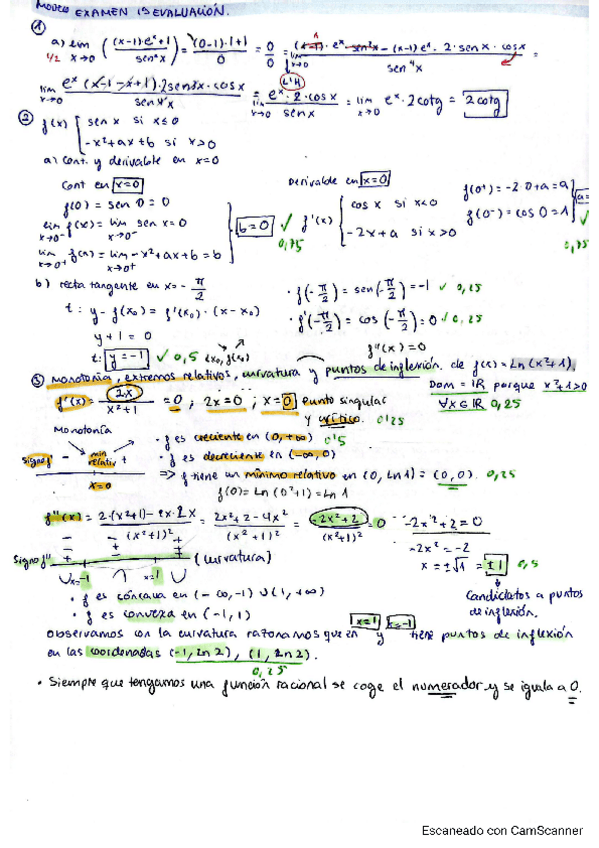 MODELO EXAMEN 1ªEVALUACIÓN.
①
a) lim x→0 ((x-1)·eˣ+1 / sen²x) = (0-1)·1+1 / 0 = 0/0 =
1/2
L'H
lim x→0 eˣ·2·cosx / senx = lim x→0 eˣ·2cotg = 2cotg
② f(x) { sen x si x≤0
-x²+ax+b si x>0
a) cont. y derivable en x=0
Cont en x=0
f(0) = sen 0 = 0
lim x→0⁻ f(x) = lim x→0⁻ sen x = 0
lim x→0⁺ f(x) = lim x→0⁺ -x²+ax+b = b
b=0 ✓
0,75
Derivable en x=0
f'(x) { cos x si x<0
-2x+a si x>0
f(0⁺) = -2·0+a = a
f(0⁻) = cos 0 = 1
0,75
b) recta tangente en x = -π/2
t: y - f(x₀) = f'(x₀)·(x-x₀)
y+1 = 0
t: y=-1 ✓ 0,5 (x₀, f(x₀))
· f(-π/2) = sen(-π/2) = -1 ✓ 0,25
· f'(-π/2) = cos(-π/2) = 0 ✓ 0,25
f''(x) = 0
③ Monotonía, extremos relativos, curvatura y puntos de inflexión. de f(x) = Ln(x²+1).
Dom = IR porque x²+1>0
∀x∈IR 0,25
f'(x) = 2x / x²+1 = 0 ; 2x=0 ; x=0 punto singular
y crítico. 0'25
Monotonía
signo f' - min relativ +
x=0
· f es creciente en (0,+∞) 0'5
· f es decreciente en (-∞,0)
=> f tiene un mínimo relativo en (0, Ln1) = (0,0). 0,25
f(0) = Ln(0²+1) = Ln 1
f''(x) = 2·(x²+1)-2x·2x / (x²+1)² = 2x²+2-4x² / (x²+1)² = -2x²+2 / (x²+1)² = 0
-2x²+2=0
-2x² = -2
x = ±√1 = ±1 0,5
Candidatos a puntos
de inflexión.
signo f'' (curvatura)
x=-1 x=1
· f es cóncava en (-∞,-1) ∪ (1,+∞)
· f es convexa en (-1,1)
Observamos con la curvatura razonamos que en x=1 y x=-1 tiene puntos de inflexión
en las coordenadas (-1, Ln2), (1, Ln2).
0,25
· Siempre que tengamos una función racional se coge el numerador y se iguala a 0.
Escaneado con CamScanner